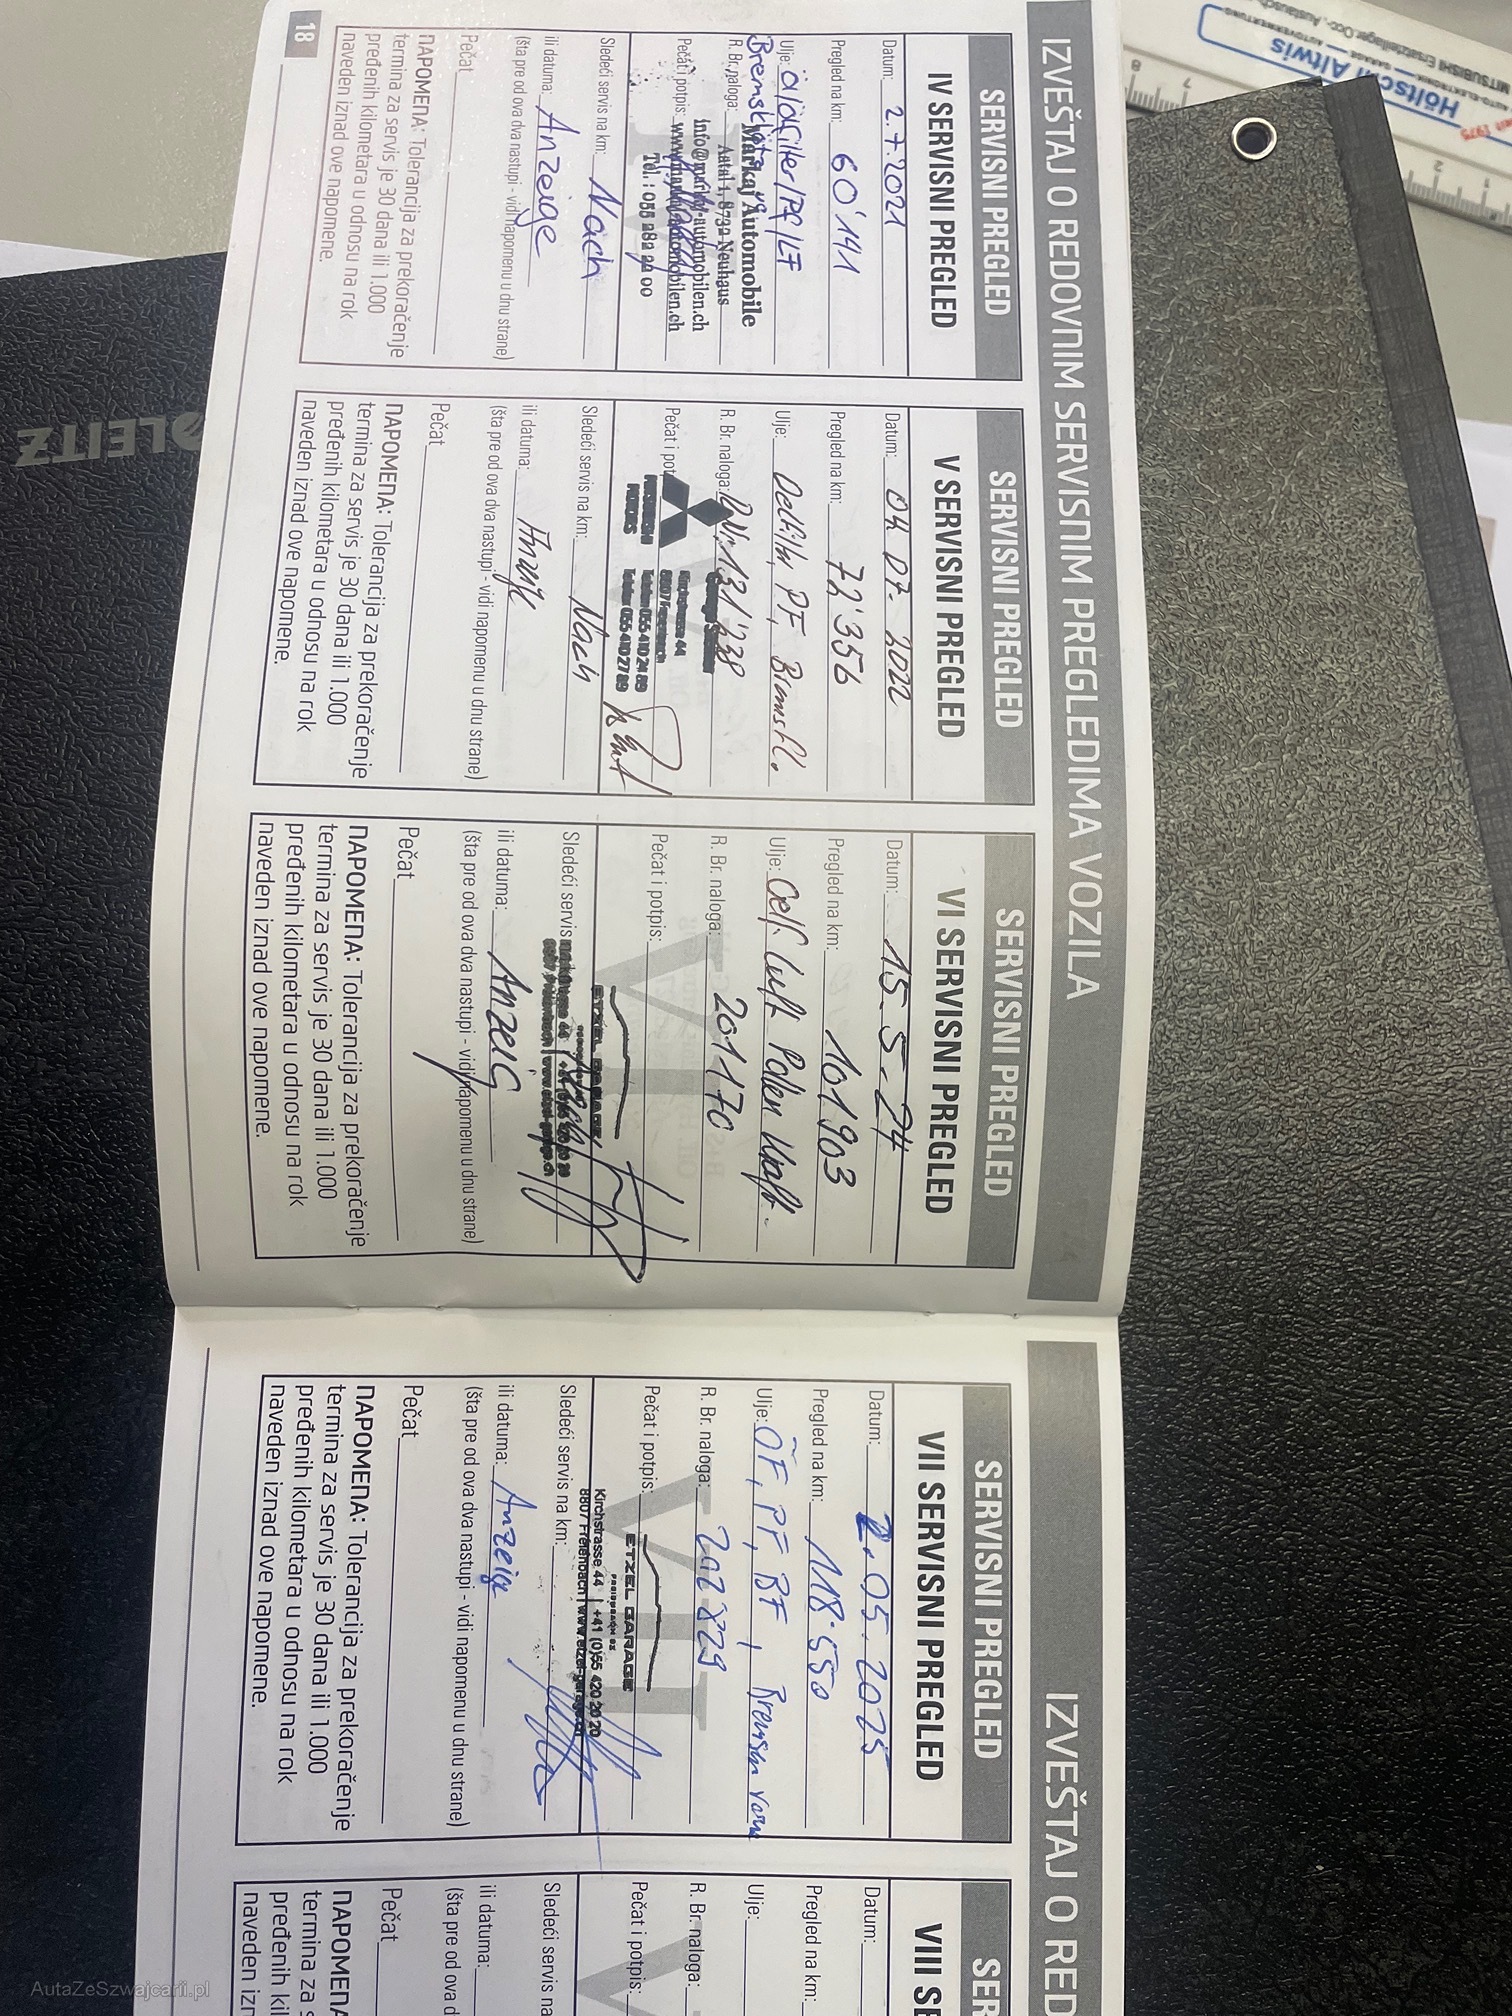 IZVEŠTAJ O REDOVNIM SERVISNIM PREGLEDIMA VOZILA
SERVISNI PREGLED
IV SERVISNI PREGLED
Datum: 2.7.2021
Pregled na km: 60'141
Ulje: Ölofilter/PF/LF
R. Br. naloga:
Markaj Automobile
Aatal 1, 8732 Neuhaus
info@markaj-automobilen.ch
Pečat i potpis: www.markaj-automobilen.ch
Tel. : 055 282 22 00
Sledeći servis na km: Nach
ili datuma: Anzeige
(šta pre od ova dva nastupi - vidi napomenu u dnu strane)
Pečat
ПAPOMEПA: Tolerancija za prekoračenje
termina za servis je 30 dana ili 1.000
pređenih kilometara u odnosu na rok
naveden iznad ove napomene.
18
SERVISNI PREGLED
V SERVISNI PREGLED
Datum: 04.07.2022
Pregled na km: 72'356
Ulje: PF, Bremsfl.
R. Br. naloga: 131'238
Pečat i pot
Kirchstrasse 44
8807 Freienbach
Telefon 055 410 24 89
Telefax 055 410 27 89
Sledeći servis na km: Nach
ili datuma: Anzeige
(šta pre od ova dva nastupi - vidi napomenu u dnu strane)
Pečat
ПAPOMEПA: Tolerancija za prekoračenje
termina za servis je 30 dana ili 1.000
pređenih kilometara u odnosu na rok
naveden iznad ove napomene.
SERVISNI PREGLED
VI SERVISNI PREGLED
Datum: 15-5-24
Pregled na km: 101903
Ulje: Oelf. Luft Pollen
R. Br. naloga: 201170
Pečat i potpis:
ETZEL GARAGE
Sledeći servis
ili datuma: Anzeig
(šta pre od ova dva nastupi - vidi napomenu u dnu strane)
Pečat
ПAPOMEПA: Tolerancija za prekoračenje
termina za servis je 30 dana ili 1.000
pređenih kilometara u odnosu na rok
naveden iznad ove napomene.
IZVEŠTAJ O RED
SERVISNI PREGLED
VII SERVISNI PREGLED
Datum: 2.05.2025
Pregled na km: 118.550
Ulje: ÖF, PF, BF, Bremsen
R. Br. naloga: 202829
Pečat i potpis:
ETZEL GARAGE
FREIENBACH SZ
Kirchstrasse 44 | +41 (0)55 420 20 20
8807 Freienbach | www.etzel-garage.ch
Sledeći servis na km:
ili datuma: Anzeige
(šta pre od ova dva nastupi - vidi napomenu u dnu strane)
Pečat
ПAPOMEПA: Tolerancija za prekoračenje
termina za servis je 30 dana ili 1.000
pređenih kilometara u odnosu na rok
naveden iznad ove napomene.
SER
VIII SE
Datum:
Pregled na km:
Ulje:
R. Br. naloga:
Pečat i potpis:
Sledeći servis na
ili datuma:
(šta pre od ova d
Pečat
ПAPOMEПA
termina za s
pređenih kil
naveden izn
LEITZ
Höltschi Altwis
AutaZeSzwajcarii.pl